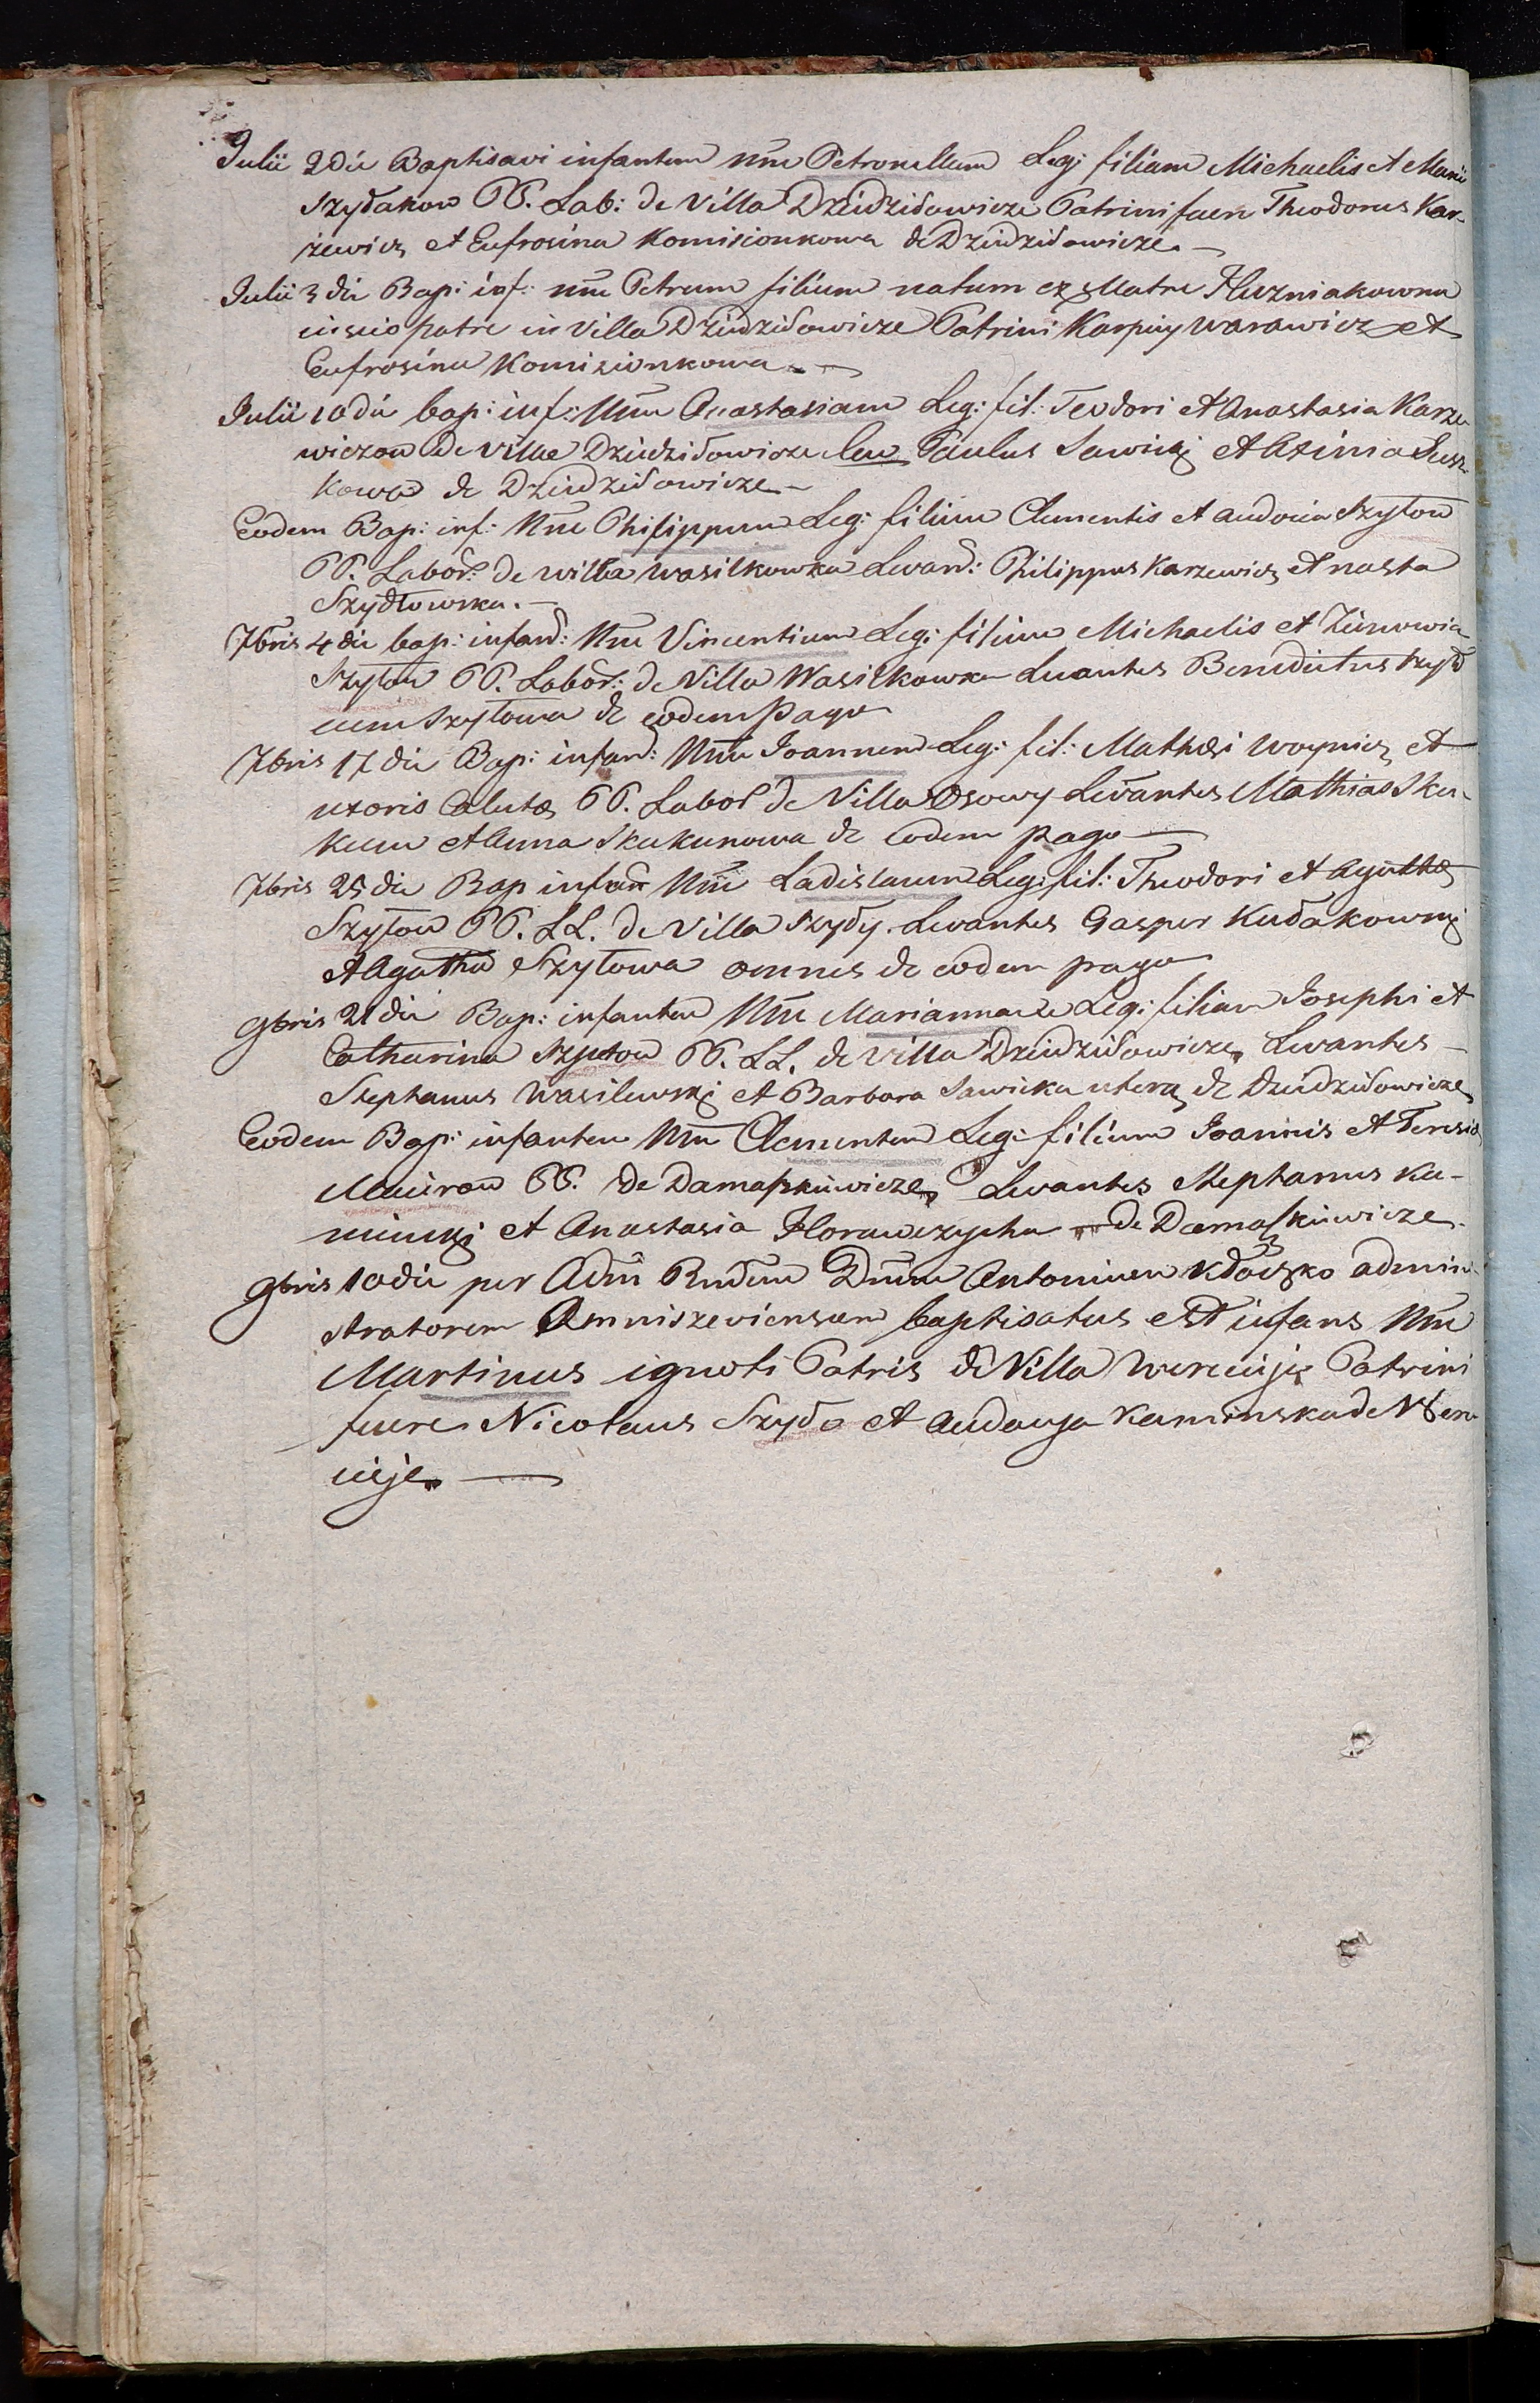 Julii 2 die Baptisavi infantem nm̅e Petronellam Leg: filiam Michaelis et Mariæ
Szydakow PP. Lab: de Villa Dziedziłowicze Patrini fuere Theodorus Kar-
żewicz et Eufrosina Komisionkowa de Dziedziłowicze. —
Julii 3 die Bap: inf: nm̅e Petrum filium natum ex Matre Hluzniakowna
inscio patre in Villa Dziedziłowicze Patrini Karpiey Warawicz et
Eufrosina Komizionkowa. —
Julii 10 die bap: inf: Nm̅e Anastasiam Leg: fil: Teodori et Anastasia Karze
wiczow De villae Dziedziłowicze Lew Paulus Sawicki et Axinia Susz-
kowa de Dziedziłowicze —
Eodem Bap: inf: Nm̅e Philippum Leg: filium Clementis et Audocia Szytow
PP. Labor: de willa Wasilkowka Levand: Philippus Karzewicz et nasta
Szydłowska. —
7bris 4 die bap: infand: Nm̅e Vincentium Leg: filium Michaelis et Zinowia
Szytow PP. Labor: de Villa Wasilkowka Levantes Benedictus Szyd
cum Szytowa de eodem Pago
7bris 17 die Bap: infand: Nm̅e Joannem Leg: fil: Mathæi Woynicz et
uxoris PP. Labor de Villa Osowy Levantes Mathias Sku-
kun et Anna Skukunowa de Eodem pago —
7bris 25 die Bap infan Nm̅e Ladislaum Leg: fil: Theodori et Agathæ
Szytow PP. LL. de Villa Szydy. Levantes Gasper Kudakowski
et Agatha Szytowa omnes de eodem pago
9bris 21 die Bap: infantem Nm̅e Mariannam Leg: filiam Josephi et
Catharina Szytow PP. LL. de Villa Dziedziłowicze, Levantes —
Stephanus Wasilewski et Barbara Sawicka de Dziedziłowicze
Eodem Bap: infantem Nm̅e Clementem Leg: filium Joannis et Teresia
Mauirow PP. de Damaszkiewicze, Levantes Stephanus Ka-
minski et Anastasia Horawczycha de Damaszkiewicze.
9bris 10 die per Adm̅ Rndum Dnum Antonium Kłoczko admini-
stratorem Omniszeviensem baptisatus est infans Nm̅e
Martinus ignoti Patris de Villa Wereuije Patrini
fuere Nicolaus Szydo et Audocya Kaminska de Were
uije. —